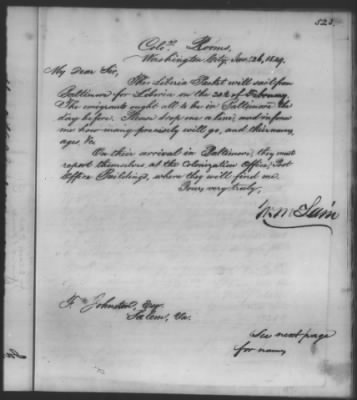 523.
Colo. Rooms,
Washington City, Jan. 26, 1849.
My Dear Sir,
The Liberia Packet will sail from
Baltimore for Liberia on the 22d of February.
The emigrants ought all to be in Baltimore the
day before. Please drop me a line, and inform
me how many precisely will go, and their names,
ages, &c.
On their arrival in Baltimore, they must
report themselves at the Colonization Office, Post
Office Building, where they will find me.
Yours, very truly,
W. McLain
Johnston, Esq.
Salem, Va.
See next page
for names